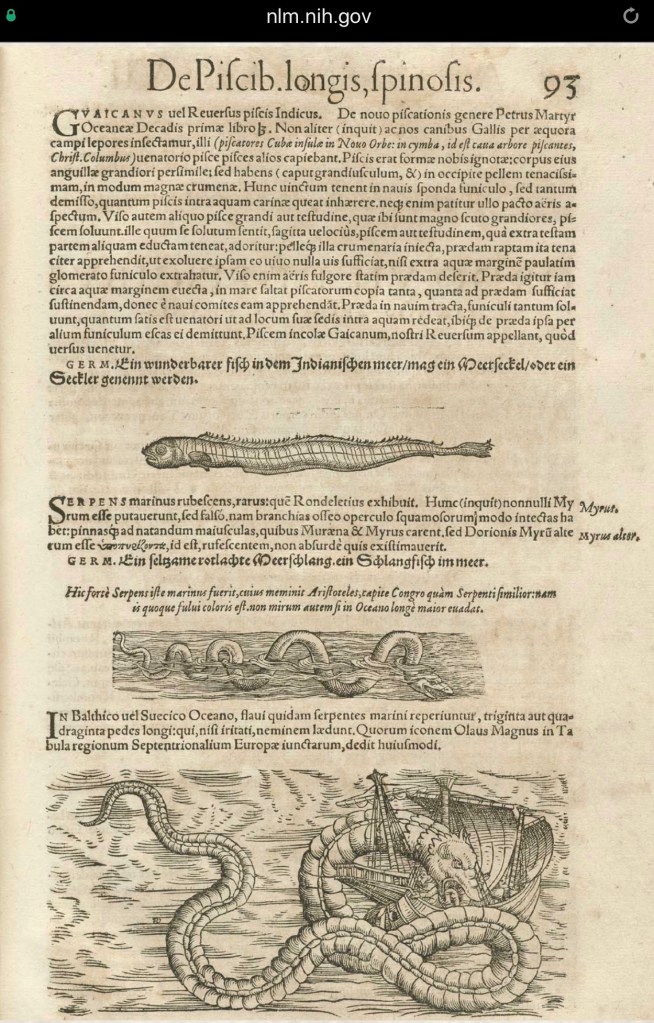 nlm.nih.gov
De Piſcib. longis, ſpinoſis. 93
GVAICANVS uel Reuerſus piſcis Indicus. De nouo piſcationis genere Petrus Martyr
Oceaneæ Decadis primæ libro Non aliter (inquit) ac nos canibus Gallis per æquora
campi lepores inſectamur, illi (piſcatores Cubæ inſulæ in Nouo Orbe: in cymba, id eſt caua arbore piſcantes,
Chriſt. Columbus) uenatorio piſce piſces alios capiebant. Piſcis erat formæ nobis ignotæ: corpus eius
anguillæ grandiori perſimile; ſed habens (caput grandiuſculum, &) in occipite pellem tenaciſsi-
mam, in modum magnæ crumenæ. Hunc uinctum tenent in nauis ſponda funiculo, ſed tantum
demiſſo, quantum piſcis intra aquam carinæ queat inhærere. neqꝫ enim patitur ullo pacto aëris a-
ſpectum. Viſo autem aliquo piſce grandi aut teſtudine, quæ ibi ſunt magno ſcuto grandiores, pi-
ſcem ſoluunt. ille quum ſe ſolutum ſentit, ſagitta uelociùs, piſcem aut teſtudinem, quà extra teſtam
partem aliquam eductam teneat, adoritur: pelleqꝫ illa crumenaria iniecta, prædam raptam ita tena
citer apprehendit, ut exoluere ipſam eo uiuo nulla uis ſufficiat, niſi extra aquæ marginē paulatim
glomerato funiculo extrahatur. Viſo enim aëris fulgore ſtatim prædam deſerit. Præda igitur iam
circa aquæ marginem euecta, in mare ſaltat piſcatorum copia tanta, quanta ad prædam ſufficiat
ſuſtinendam, donec è naui comites eam apprehendāt. Præda in nauim tracta, funiculi tantum ſol-
uunt, quantum ſatis eſt uenatori ut ad locum ſuæ ſedis intra aquam redeat, ibiqꝫ de præda ipſa per
alium funiculum eſcas ei demittunt. Piſcem incolæ Guaicanum, noſtri Reuerſum appellant, quòd
uerſus uenetur.
GERM. Ein wunderbarer fiſch in dem Indianiſchen meer/mag ein Meerſeckel/oder ein
Seckler genennt werden.
SERPENS marinus rubeſcens, rarus: quē Rondeletius exhibuit. Hunc (inquit) nonnulli My
rum eſſe putauerunt, ſed falſò. nam branchias oſſeo operculo ſquamoſorum modo intectas ha
bet: pinnasqꝫ ad natandum maiuſculas, quibus Muræna & Myrus carent. ſed Dorionis Myrū alte
rum eſſe id eſt, rufeſcentem, non abſurdè quis exiſtimauerit.
Myrus.
Myrus alter.
GERM. Ein ſeltzame rotlachte Meerſchlang. ein Schlangfiſch im meer.
Hic fortè Serpens iſte marinus fuerit, cuius meminit Ariſtoteles, capite Congro quàm Serpenti ſimilior: nam
is quoque fului coloris eſt. non mirum autem ſi in Oceano longè maior euadat.
IN Balthico uel Suecico Oceano, flaui quidam ſerpentes marini reperiuntur, triginta aut qua-
draginta pedes longi: qui, niſi iritati, neminem lædunt. Quorum iconem Olaus Magnus in Ta
bula regionum Septentrionalium Europæ iunctarum, dedit huiuſmodi.